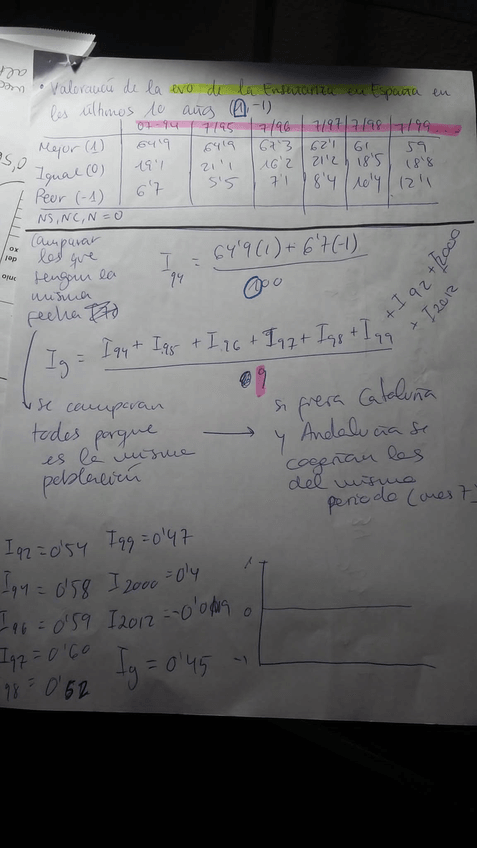 • Valoración de la evo de la Enseñanza en España en
los últimos 10 años (1,-1)
07-94 7/95 7/96 7/97 7/98 7/99
Mejor (1) 64'9 64'9 62'3 62'1 61 59
Igual (0) 19'1 21'1 16'2 21'2 18'5 18'8
Peor (-1) 6'7 5'5 7'1 8'4 10'4 12'1
NS, NC, N = 0
Comparar
los que
tengan la
misma
fecha
I94 = 64'9(1) + 6'7(-1)
100
Ig = I94 + I95 + I96 + I97 + I98 + I99 + I92 + I2000
+ I2012
9
se comparan
todos porque
es la misma
población
si fuera Cataluña
y Andalucía se
cogerían las
del mismo
periodo (mes 7)
I92 = 0'54 I99 = 0'47
I94 = 0'58 I2000 = 0'4
I96 = 0'59 I2012 =
I97 = 0'60 Ig = 0'45
98 = 0'52
1
0
-1